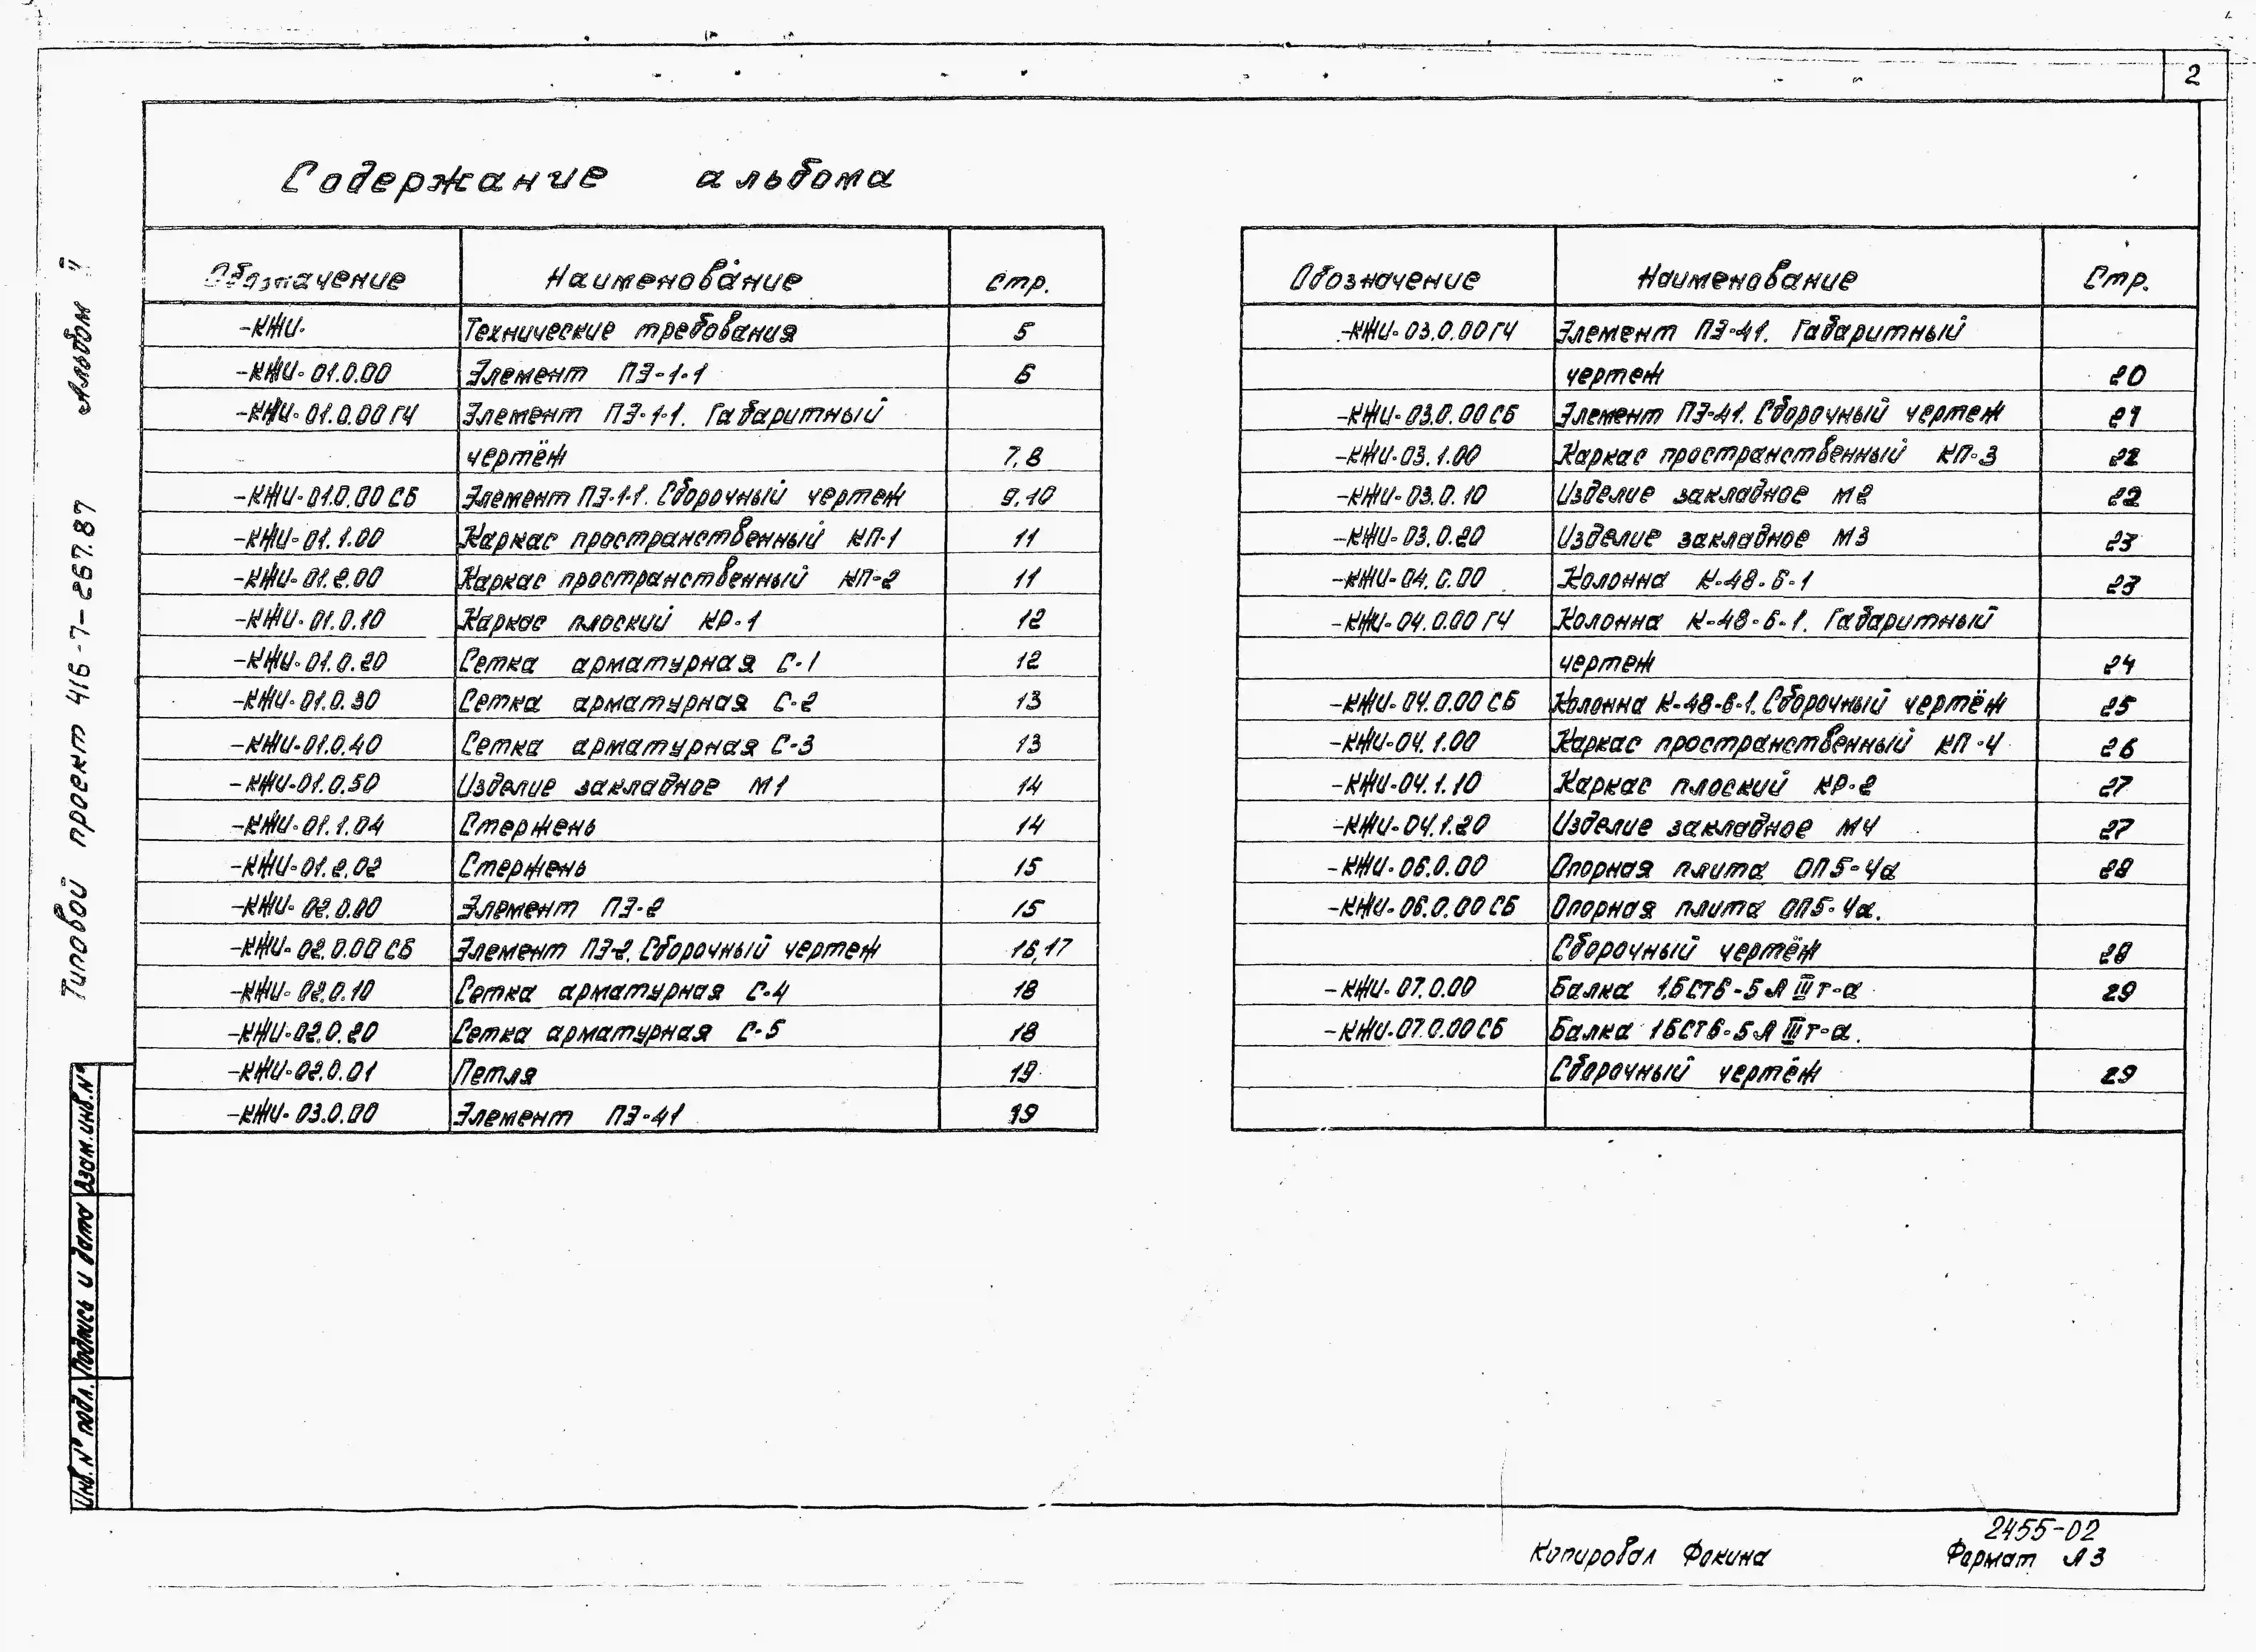 2
Содержание альбома
Обозначение Наименование Стр.
-КЖИ- Технические требования 5
-КЖИ-01.0.00 Элемент ПЭ-1-1 6
-КЖИ-01.0.00ГЧ Элемент ПЭ-1-1. Габаритный
чертёж 7,8
-КЖИ-01.0.00СБ Элемент ПЭ-1-1. Сборочный чертеж 9,10
-КЖИ-01.1.00 Каркас пространственный КП-1 11
-КЖИ-01.2.00 Каркас пространственный КП-2 11
-КЖИ-01.0.10 Каркас плоский КР-1 12
-КЖИ-01.0.20 Сетка арматурная С-1 12
-КЖИ-01.0.30 Сетка арматурная С-2 13
-КЖИ-01.0.40 Сетка арматурная С-3 13
-КЖИ-01.0.50 Изделие закладное М1 14
-КЖИ-01.1.04 Стержень 14
-КЖИ-01.2.02 Стержень 15
-КЖИ-02.0.00 Элемент ПЭ-2 15
-КЖИ-02.0.00СБ Элемент ПЭ-2. Сборочный чертеж 16,17
-КЖИ-02.0.10 Сетка арматурная С-4 18
-КЖИ-02.0.20 Сетка арматурная С-5 18
-КЖИ-02.0.01 Петля 19
-КЖИ-03.0.00 Элемент ПЭ-41 19
Обозначение Наименование Стр.
-КЖИ-03.0.00ГЧ Элемент ПЭ-41. Габаритный
чертеж 20
-КЖИ-03.0.00СБ Элемент ПЭ-41. Сборочный чертеж 21
-КЖИ-03.1.00 Каркас пространственный КП-3 22
-КЖИ-03.0.10 Изделие закладное М2 22
-КЖИ-03.0.20 Изделие закладное М3 23
-КЖИ-04.0.00 Колонна К-48-6-1 23
-КЖИ-04.0.00ГЧ Колонна К-48-6-1. Габаритный
чертеж 24
-КЖИ-04.0.00СБ Колонна К-48-6-1. Сборочный чертёж 25
-КЖИ-04.1.00 Каркас пространственный КП-4 26
-КЖИ-04.1.10 Каркас плоский КР-2 27
-КЖИ-04.1.20 Изделие закладное М4 27
-КЖИ-06.0.00 Опорная плита ОП5-4а 28
-КЖИ-06.0.00СБ Опорная плита ОП5-4а.
Сборочный чертёж 28
-КЖИ-07.0.00 Балка 1БСТ6-5АIIIт-а 29
-КЖИ-07.0.00СБ Балка 1БСТ6-5АIIIт-а.
Сборочный чертёж 29
Типовой проект 416-7-267.87 Альбом
Инв.№ подл. Подпись и дата Взам.инв.№
2455-02
Копировал Фокина Формат А3